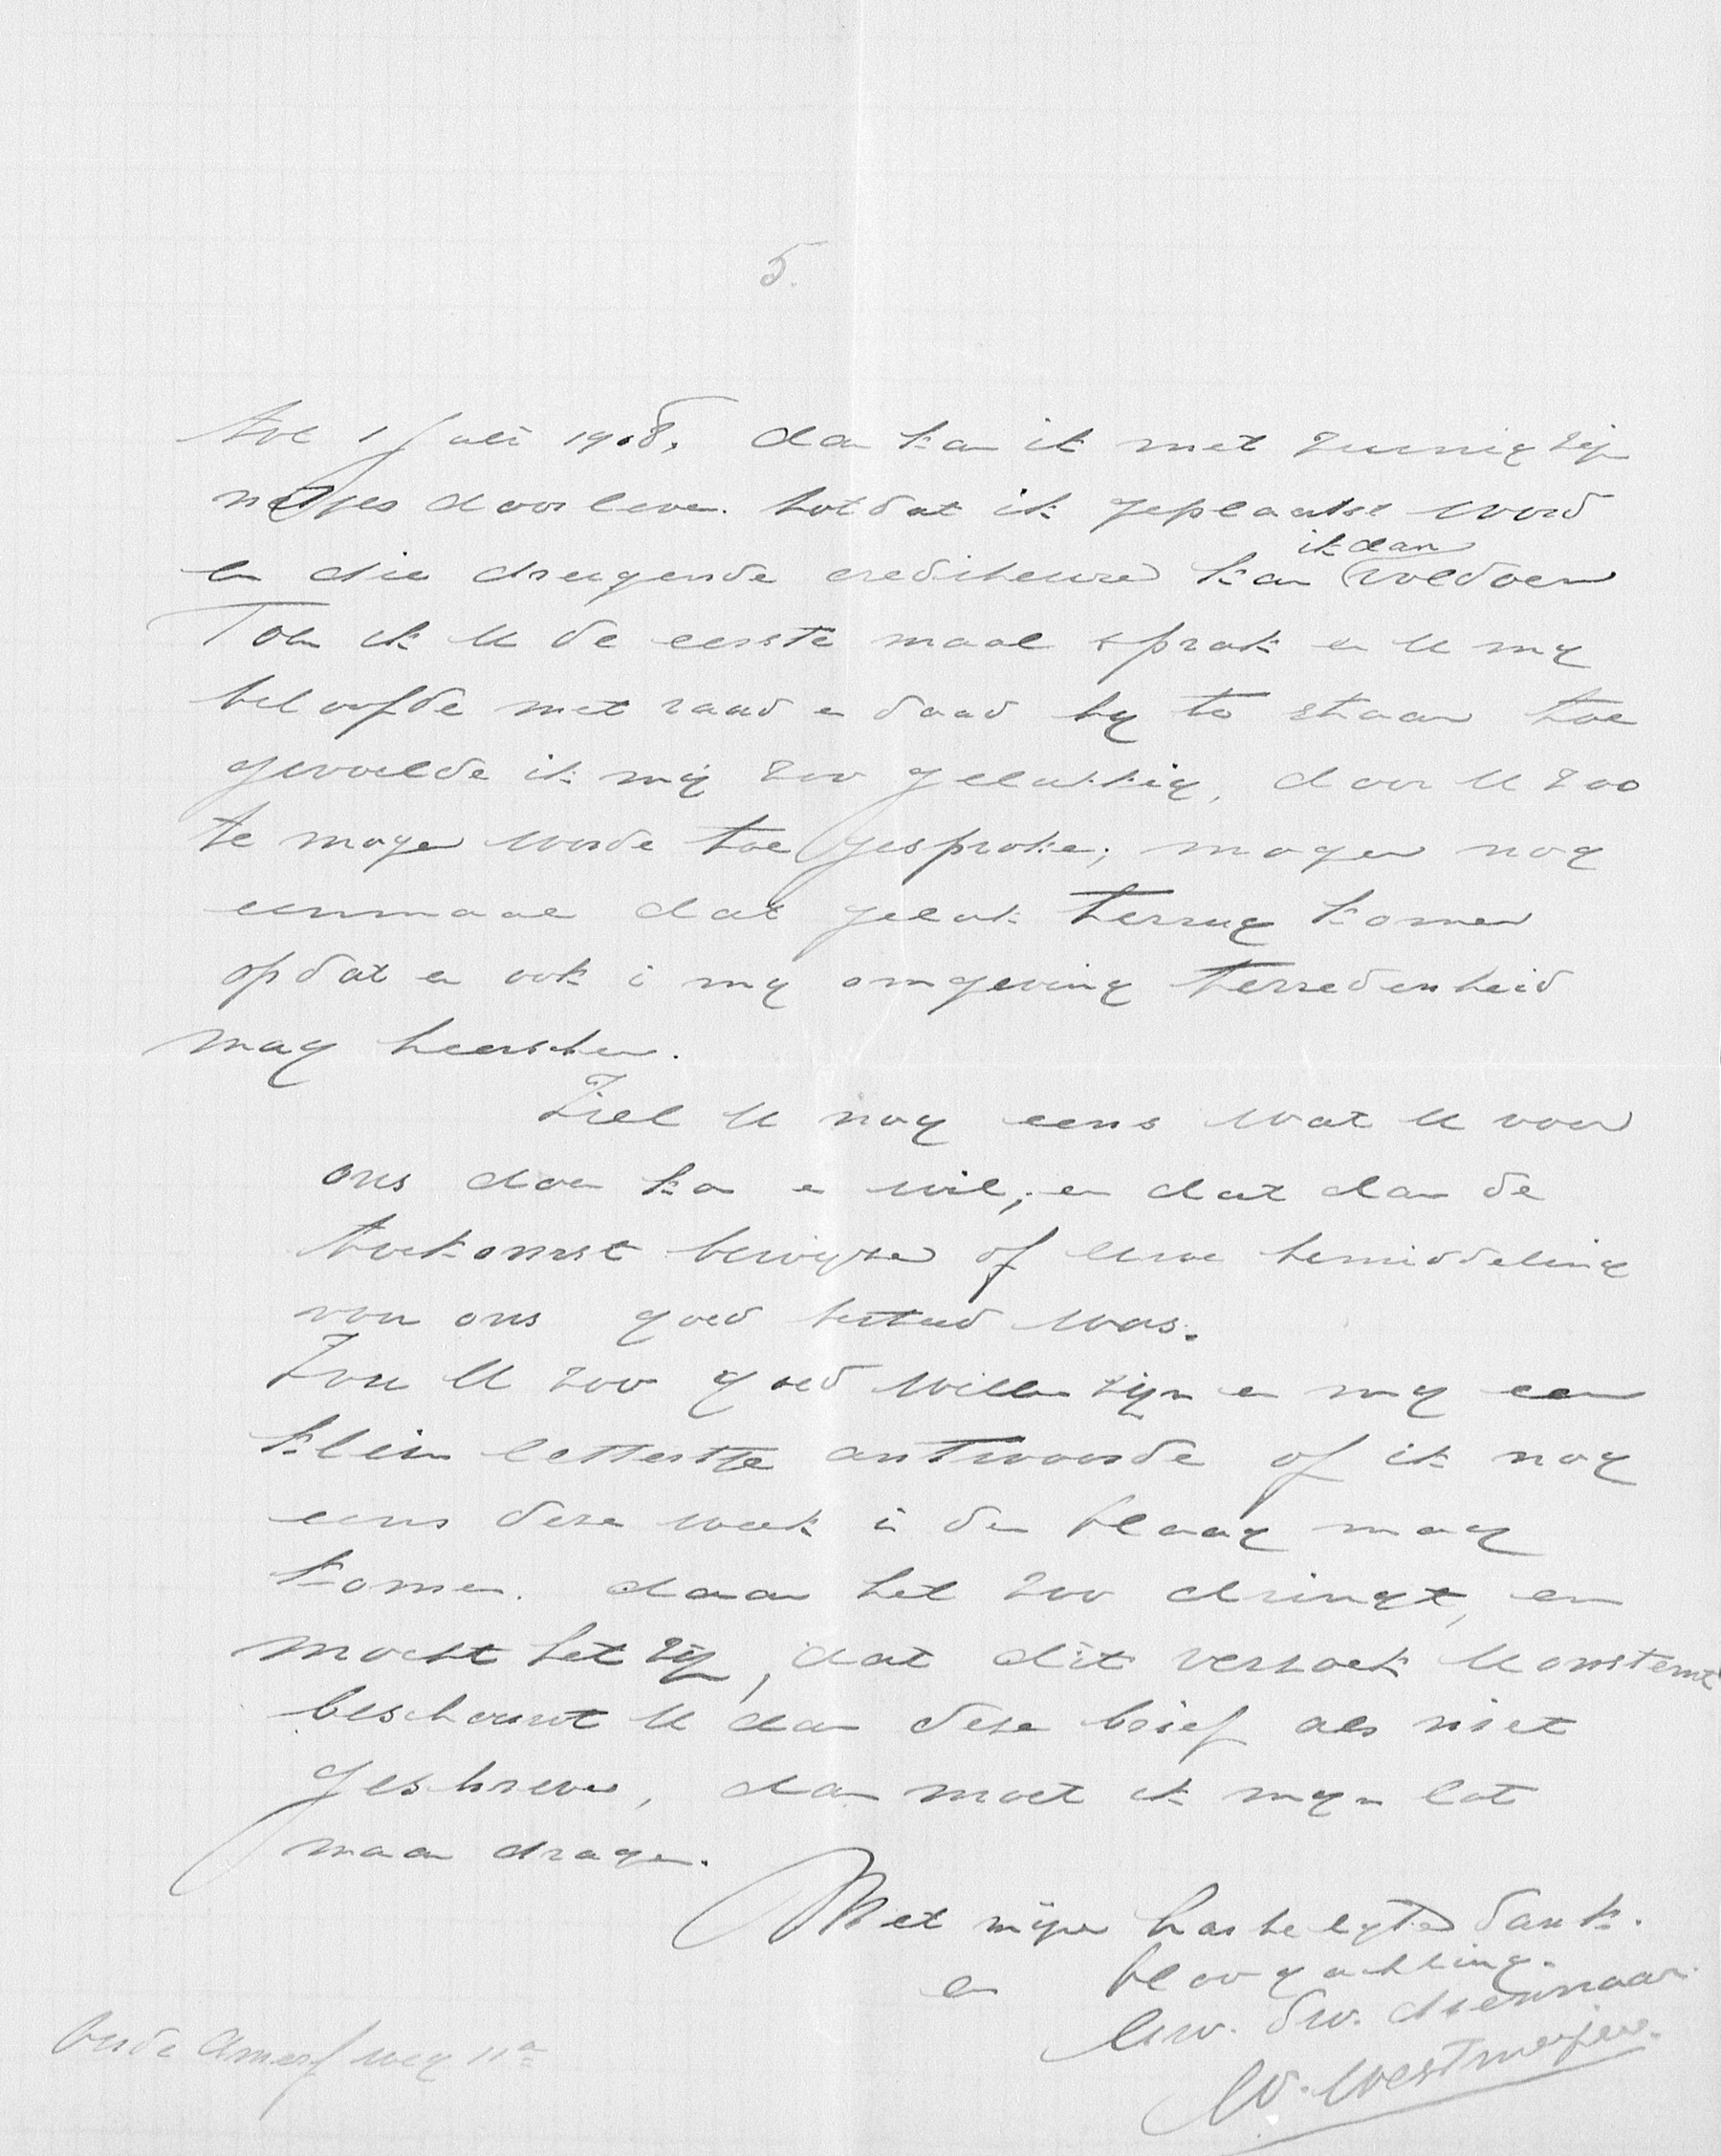 5.
tot 1 Juli 1908, dan kan ik met zuinig zijn
netjes doorleven. totdat ik geplaatst word
en die dreigende crediteuren kan
ik dan
voldoen
Toen ik U de eerste maal sprak en U mij
beloofde met raad en daad bij te staan toe
gevoelde ik mij zoo gelukkig, door U zoo
te mogen worde toegesproken; mogen nog
eenmaal dat geluk terrug komen
opdat er ook in mij omgeving tevredenheid
mag heerschen.
Ziet U nog eens wat U voor
ons doen kan en wil; en dat dan de
toekomst bewijzen of Uwe bemiddeling
van ons goed besteed was.
Zou U zoo goed willen zijn en mij een
klein lettertje antwoorde of ik nog
eens deze week in den Haag mag
komen. daar het zoo dringt, en
mocht het zijn, dat dit verzoek U onstemt
beschouwt U dan deze brief als niet
geschreven, dan moet ik mijn lot
maar dragen.
Met mijne hartelijkste dank.
en Hoogachting.
Uw. dw. dienaar.
W. Westmeijer.
Oude Amersf weg 11a